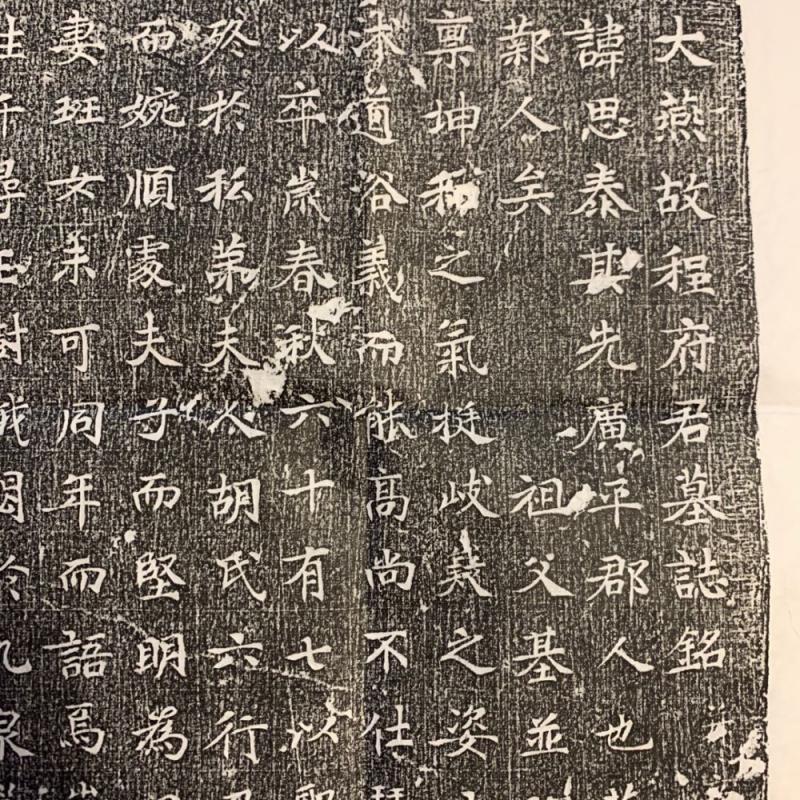 大燕故程府君墓誌銘
諱思泰其先廣平郡人也
鄴人矣 祖父基並
禀坤稱之氣挺岐嶷之姿
道浴義而能高尚不仕
以卒歲春秋六十有七以聖
終於私苐夫人胡氏六行
而婉順雯夫子而堅明為
妻班女未可同年而語焉
尋 樹 泉